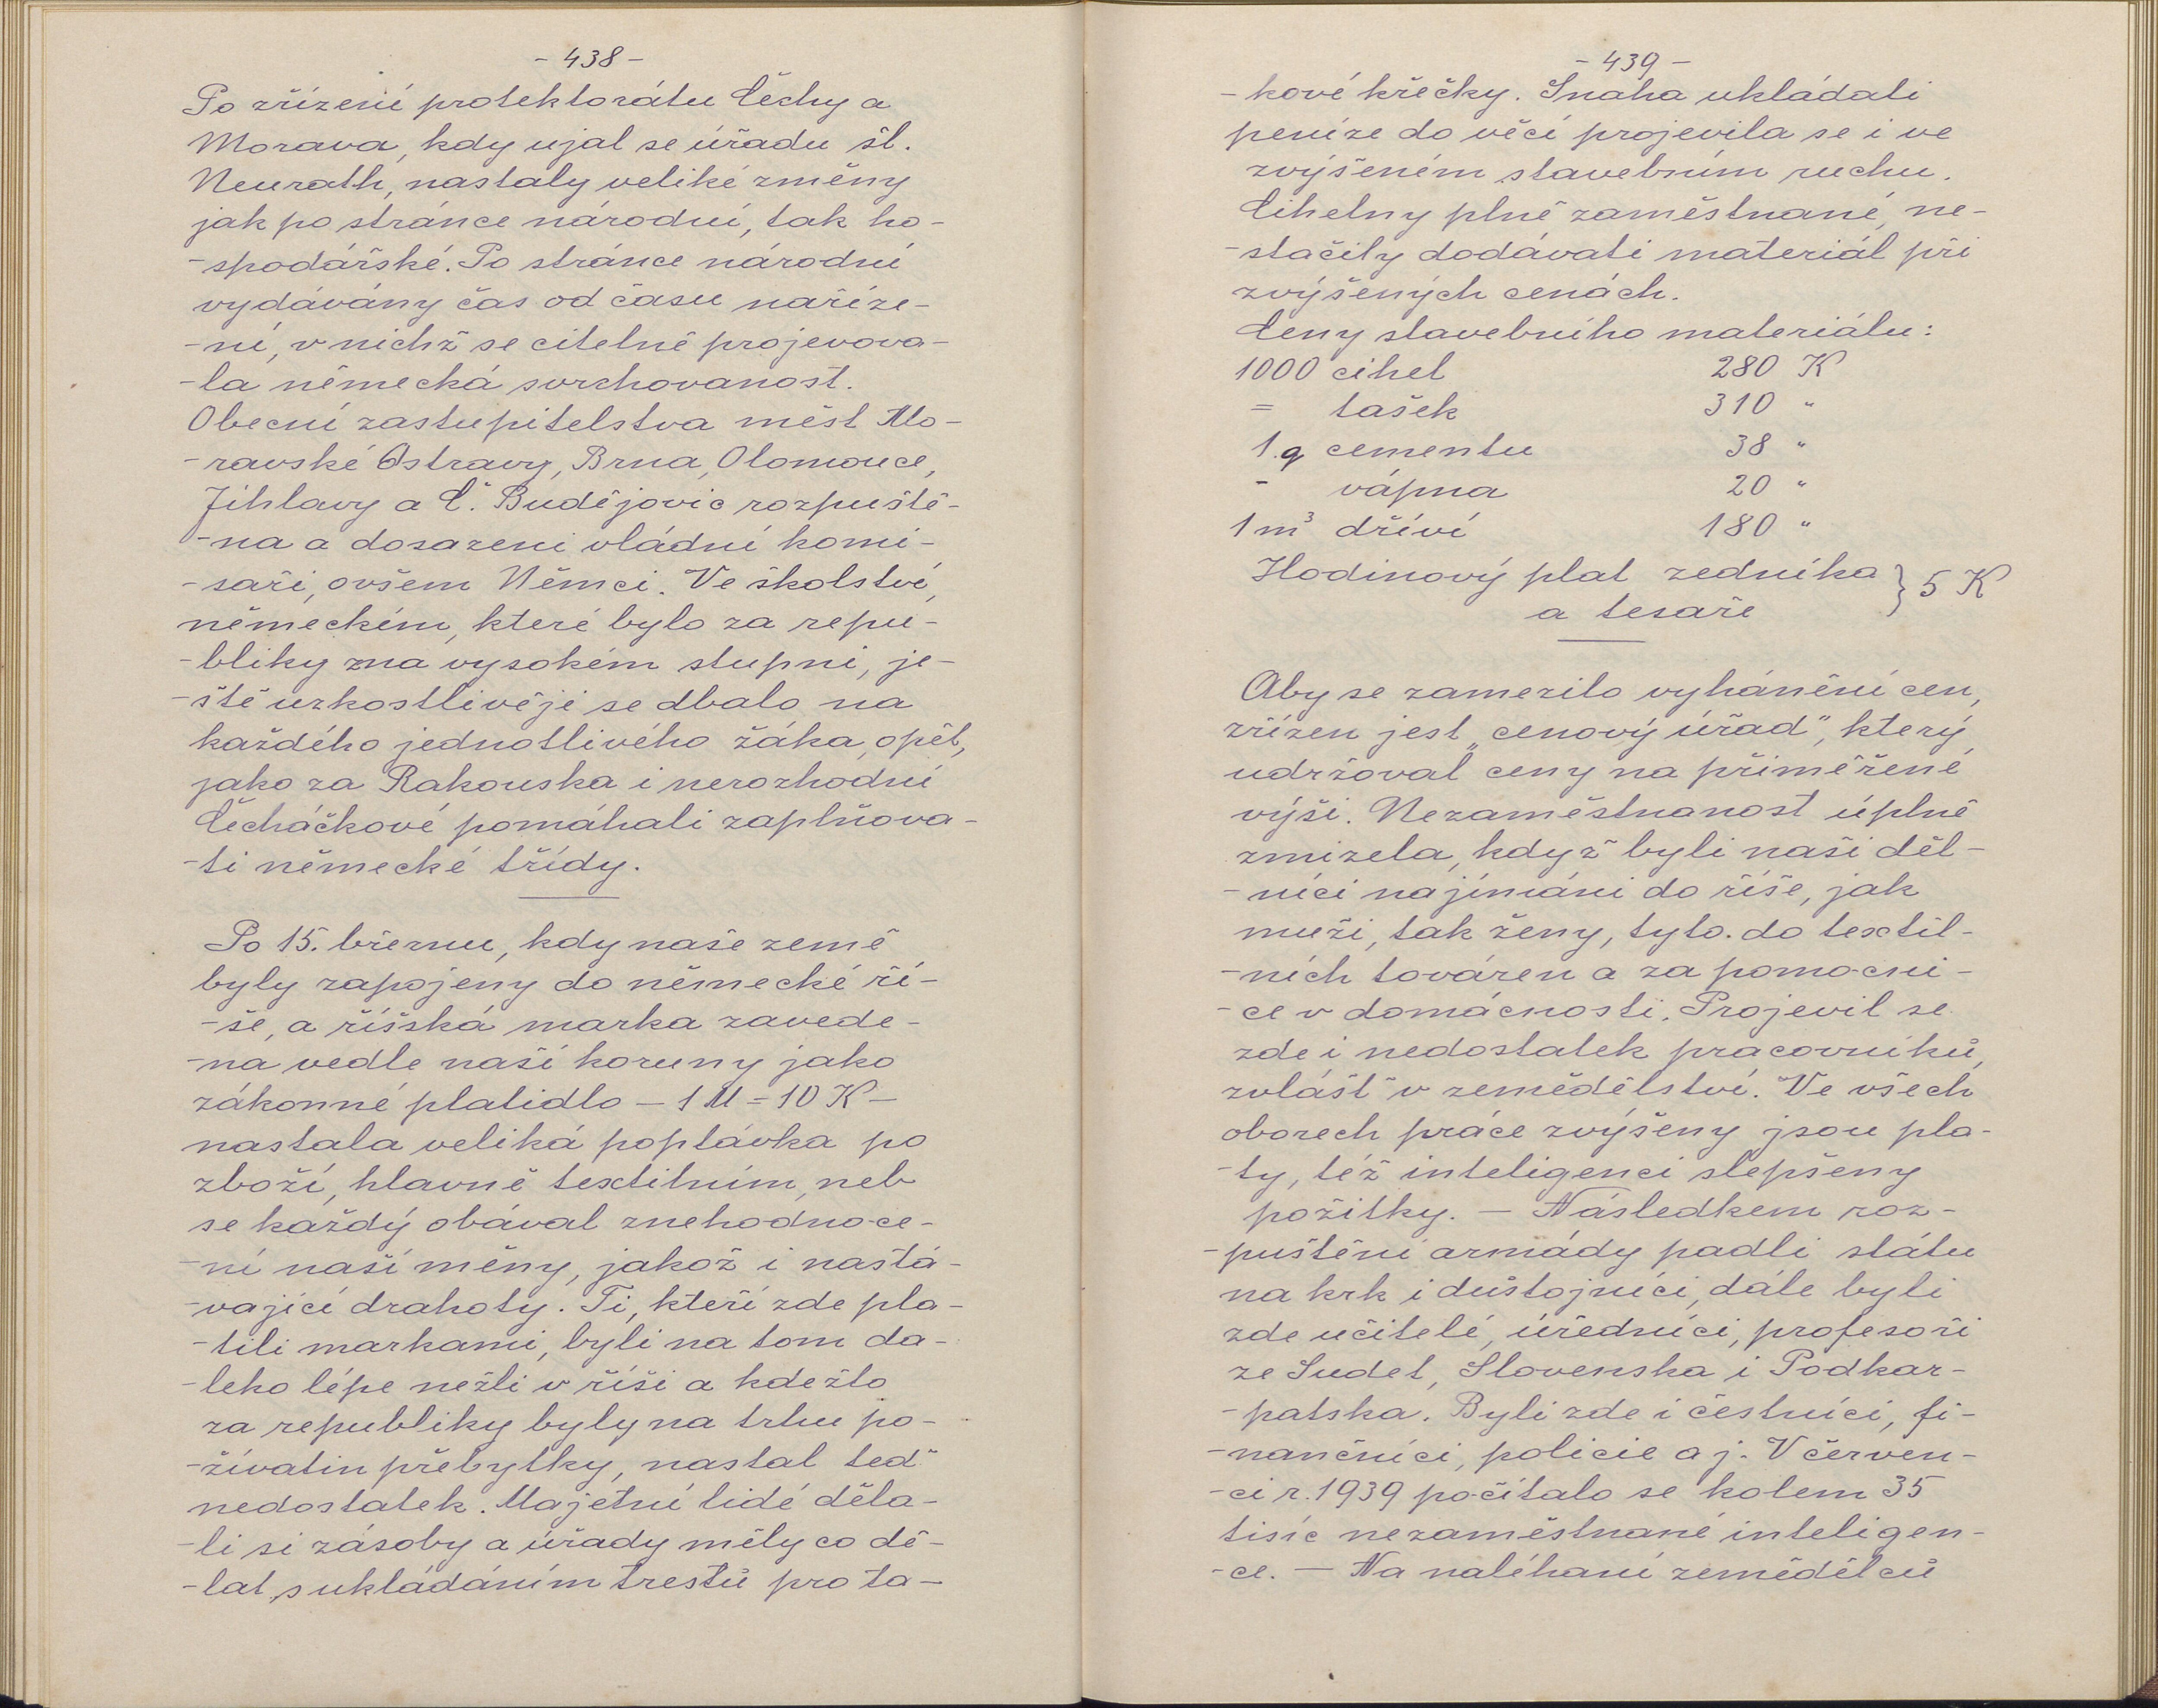 - 438 -
Po zřízení protektorátu Čechy a
Morava, kdy ujal se úřadu šl.
Neurath, nastaly veliké změny
jak po stránce národní, tak ho-
-spodářské. Po stránce národní
vydávány čas od času naříze-
-ní, v nichž se citelně projevova-
-la německá svrchovanost.
Obecní zastupitelstva měst Mo-
-ravské Ostravy, Brna, Olomouce,
Jihlavy a Č. Budějovic rozpuště-
-na a dosazeni vládní komi-
-saři, ovšem Němci. Ve školství
německém, které bylo za repu-
-bliky na vysokém stupni, je-
-ště úzkostlivěji se dbalo na
každého jednotlivého žáka, opět,
jako za Rakouska i nerozhodní
Čecháčkové pomáhali zaplňova-
-ti německé třídy.
Po 15. březnu, kdy naše země
byly zapojeny do německé ří-
-še, a říšská marka zavede-
-na vedle naší koruny jako
zákonné platidlo - 1 M = 10 K -
nastala veliká poptávka po
zboží, hlavně textilním, neb
se každý obával znehodnoce-
-ní naší měny, jakož i nastá-
-vající drahoty. Ti, kteří zde pla-
-tili markami, byli na tom da-
-leko lépe nežli v říši a kdežto
za republiky byly na trhu po-
-živatin přebytky, nastal teď
nedostatek. Majetní lidé děla-
-li si zásoby a úřady měly co dě-
-lat s ukládáním trestů pro ta-
- 439 -
-kové křečky. Snaha ukládati
peníze do věcí projevila se i ve
zvýšeném stavebním ruchu.
Cihelny plně zaměstnané, ne-
-stačily dodávati materiál při
zvýšených cenách.
Ceny stavebního materiálu:
1000 cihel 280 K
= tašek 310 "
1 q cementu 38 "
- vápna 20 "
1 m³ dříví 180 "
Hodinový plat zedníka } 5 K
a tesaře
Aby se zamezilo vyhánění cen,
zřízen jest „cenový úřad", který
udržoval ceny na přiměřené
výši. Nezaměstnanost úplně
zmizela, když byli naši děl-
-níci najímáni do říše, jak
muži, tak ženy, tyto do textil-
-ních továren a za pomocni-
-ce v domácnosti. Projevil se
zde i nedostatek pracovníků,
zvlášť v zemědělství. Ve všech
oborech práce zvýšeny jsou pla-
-ty, též inteligenci slepšeny
požitky. - Následkem roz-
-puštění armády padli státu
na krk i důstojníci, dále byli
zde učitelé, úředníci, profesoři
ze Sudet, Slovenska i Podkar-
-patska. Byli zde i četníci, fi-
-nančníci, policie a j. V červen-
-ci r. 1939 počítalo se kolem 35
tisíc nezaměstnané inteligen-
-ce. - Na naléhaní zemědělců